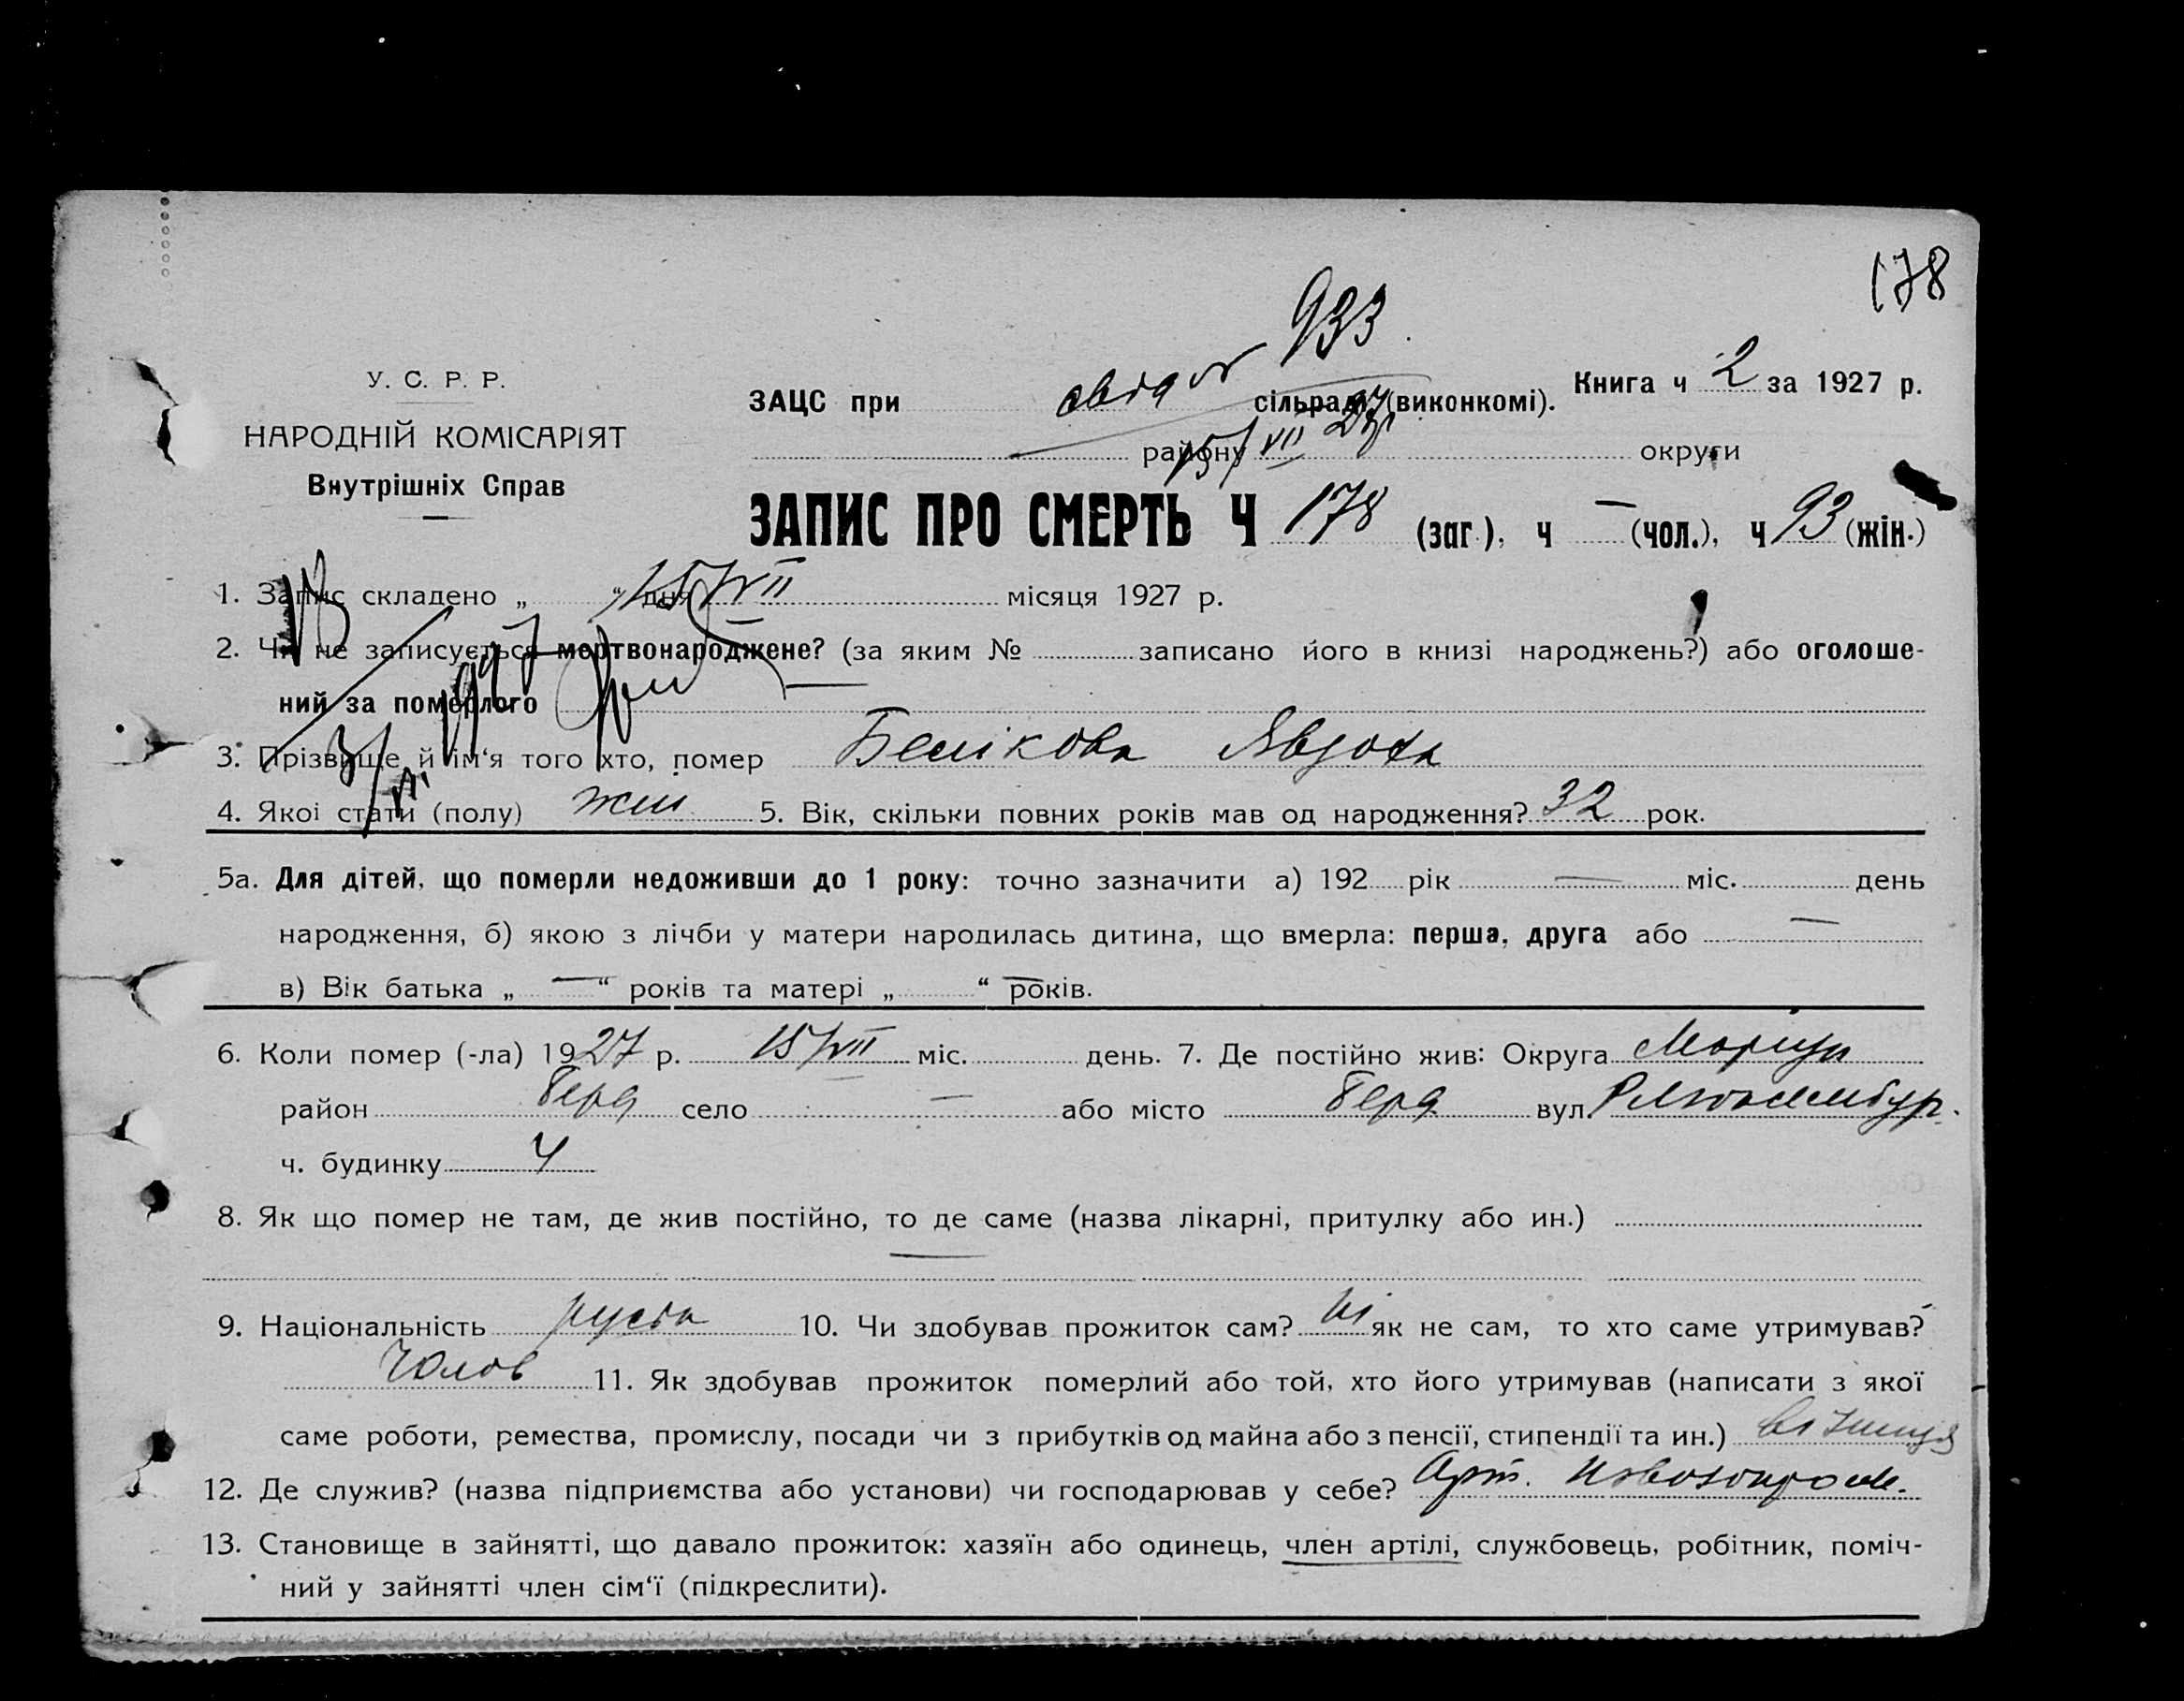 178
933
У. С. Р. Р.
ЗАЦС при сільраді (виконкомі). Книга ч 2 за 1927 р.
НАРОДНІЙ КОМІСАРІЯТ
району 15/VII 27 округи
Внутрішніх Справ
ЗАПИС ПРО СМЕРТЬ Ч 178 (заг.), ч — (чол.), ч 93 (жін.)
1. Запис складено „ “ дня 15/VII місяця 1927 р.
2. Чи не записується мертвонароджене? (за яким № записано його в книзі народжень?) або оголоше-
ний за померлого —
3. Прізвище й ім‘я того хто, помер Белікова Явдоха
4. Якої стати (полу) жін 5. Вік, скільки повних років мав од народження? 32 рок.
5а. Для дітей, що померли недоживши до 1 року: точно зазначити а) 192 рік — міс. день
народження, б) якою з лічби у матери народилась дитина, що вмерла: перша, друга або —
в) Вік батька „ — “ років та матері „ “ років.
6. Коли помер (-ла) 1927 р. 15/VII міс. день. 7. Де постійно жив: Округа Маріуп
район Берд село — або місто Берд вул. Р Люксембур.
ч. будинку 4
8. Як що помер не там, де жив постійно, то де саме (назва лікарні, притулку або ин.)
—
9. Національність руська 10. Чи здобував прожиток сам? ні як не сам, то хто саме утримував?
Чолов 11. Як здобував прожиток померлий або той, хто його утримував (написати з якої
саме роботи, ремества, промислу, посади чи з прибутків од майна або з пенсії, стипендії та ин.)
12. Де служив? (назва підприємства або установи) чи господарював у себе? Арт.
13. Становище в зайнятті, що давало прожиток: хазяїн або одинець, член артілі, службовець, робітник, поміч-
ний у зайнятті член сім‘ї (підкреслити).